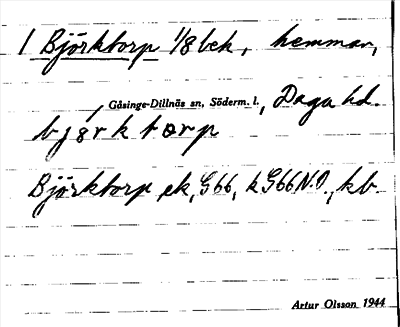 1 Björktorp 1/8 bek, hemman,
Gåsinge-Dillnäs sn, Söderm. l., Daga hd.
bjǿrktɷrp
Björktorp ek, G66, k G66 N.O., kb.
Artur Olsson 1944